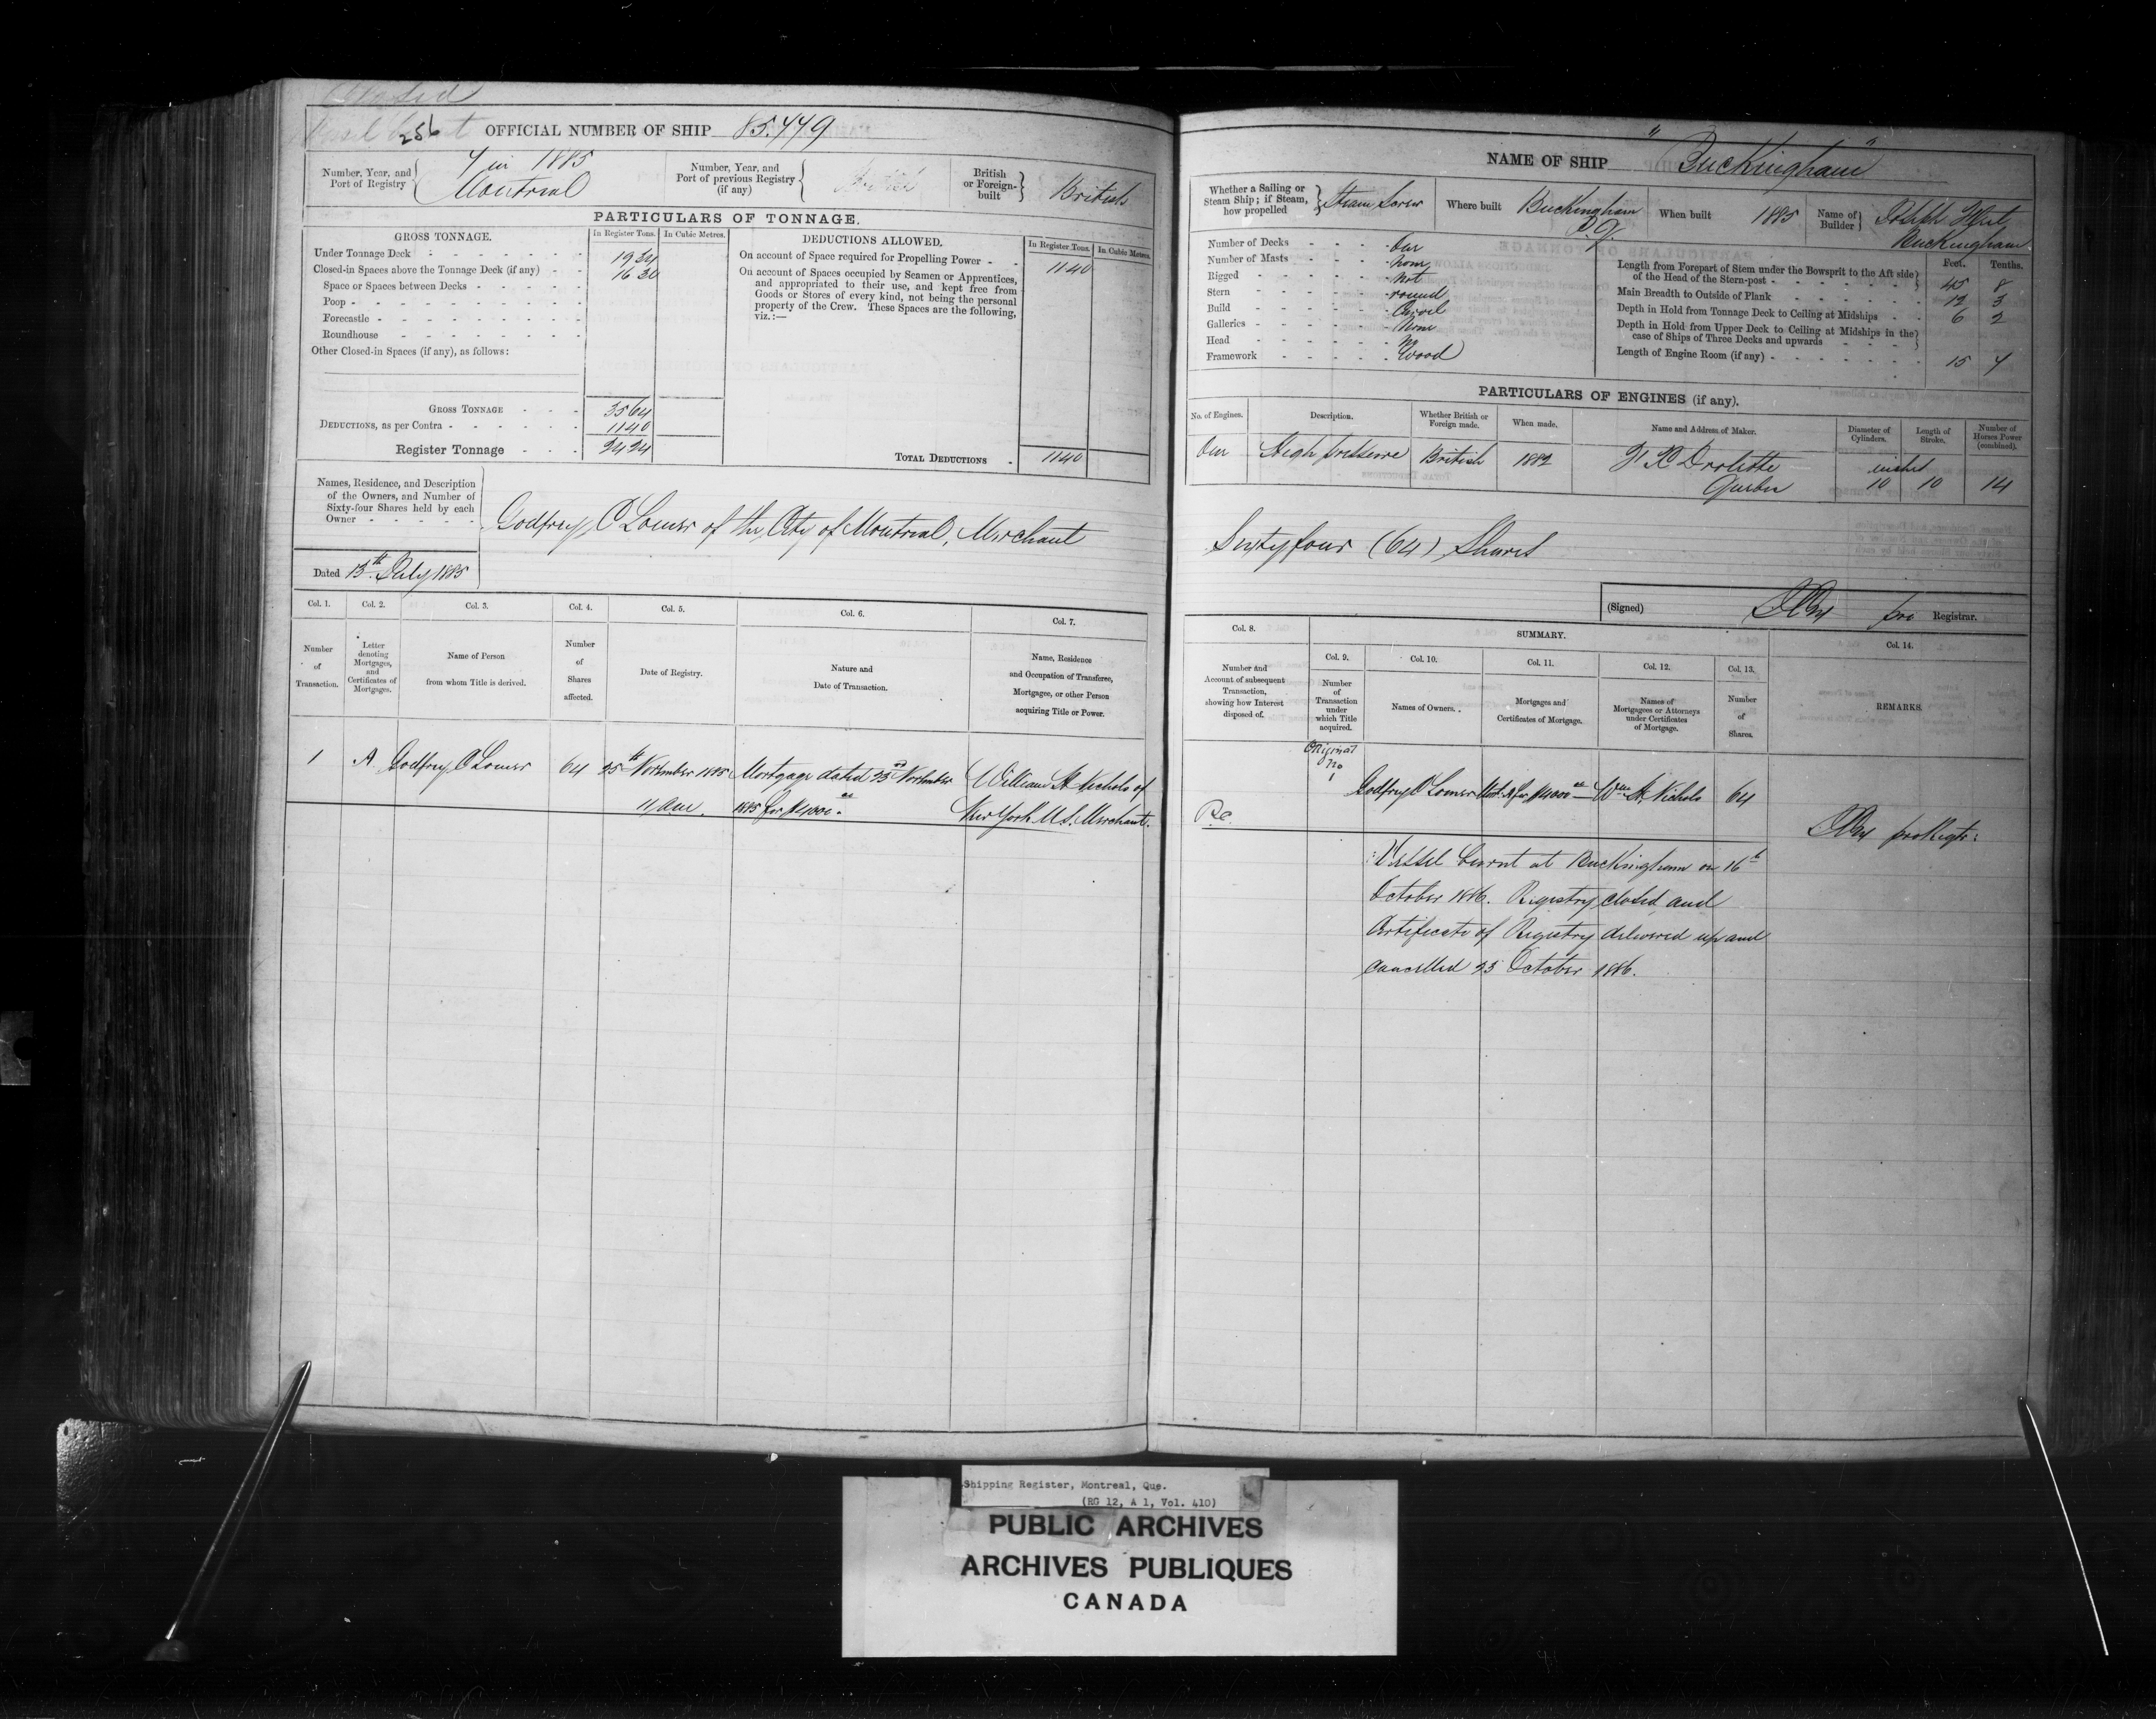 Closed
Vessel Burnt
256 OFFICIAL NUMBER OF SHIP 85.479
Number, Year, and Port of Registry { 7 in 1885 Montreal
Number, Year, and Port of previous Registry (if any) {
British or Foreign-built } British
PARTICULARS OF TONNAGE.
GROSS TONNAGE. In Register Tons. In Cubic Metres.
Under Tonnage Deck 19 34
Closed-in Spaces above the Tonnage Deck (if any) 16 30
Space or Spaces between Decks
Poop
Forecastle
Roundhouse
Other Closed-in Spaces (if any), as follows:
GROSS TONNAGE 35 64
DEDUCTIONS, as per Contra 11 40
Register Tonnage 24 24
DEDUCTIONS ALLOWED. In Register Tons. In Cubic Metres.
On account of Space required for Propelling Power 11 40
On account of Spaces occupied by Seamen or Apprentices,
and appropriated to their use, and kept free from
Goods or Stores of every kind, not being the personal
property of the Crew. These Spaces are the following,
viz.:—
TOTAL DEDUCTIONS 11 40
Names, Residence, and Description
of the Owners, and Number of
Sixty-four Shares held by each
Owner
Godfrey O Lomer of the City of Montreal, Merchant
Dated 13th July 1885
Col. 1. Col. 2. Col. 3. Col. 4. Col. 5. Col. 6. Col. 7.
Number of Transaction.
Letter denoting Mortgages, and Certificates of Mortgages.
Name of Person from whom Title is derived.
Number of Shares affected.
Date of Registry.
Nature and Date of Transaction.
Name, Residence and Occupation of Transferee, Mortgagee, or other Person acquiring Title or Power.
1 A Godfrey O Lomer 64 25th November 1885 Mortgage dated 23rd November William H Nichols of
11 am. 1885 for $4000.00 New York U.S. Merchant.
NAME OF SHIP "Buckingham"
Whether a Sailing or Steam Ship; if Steam, how propelled } Steam Screw
Where built Buckingham P.Q.
When built 1885
Name of Builder } Joseph Buckingham
Number of Decks One
Number of Masts None
Rigged Not
Stern round
Build Carvel
Galleries None
Head No
Framework Wood
Feet. Tenths.
Length from Forepart of Stem under the Bowsprit to the Aft side of the Head of the Stern-post 45 8
Main Breadth to Outside of Plank 12 3
Depth in Hold from Tonnage Deck to Ceiling at Midships 6 2
Depth in Hold from Upper Deck to Ceiling at Midships in the case of Ships of Three Decks and upwards
Length of Engine Room (if any) 15 4
PARTICULARS OF ENGINES (if any).
No. of Engines. Description. Whether British or Foreign made. When made. Name and Address of Maker. Diameter of Cylinders. Length of Stroke. Number of Horses Power (combined).
One High pressure British 1882 F X Drolette inches
Quebec 10 10 14
Sixty four (64) Shares
(Signed) pro Registrar.
Col. 8. SUMMARY. Col. 14.
Col. 9. Col. 10. Col. 11. Col. 12. Col. 13.
Number and Account of subsequent Transaction, showing how Interest disposed of.
Number of Transaction under which Title acquired.
Names of Owners.
Mortgages and Certificates of Mortgage.
Names of Mortgagees or Attorneys under Certificates of Mortgage.
Number of Shares.
REMARKS.
Original
No
1 Godfrey O Lomer Mort. A for $4000.00 Wm H. Nichols 64
R.C. pro Regtr:
Vessel burnt at Buckingham on 16th
October 1886. Registry closed and
Certificate of Registry delivered up and
cancelled 23 October 1886.
Shipping Register, Montreal, Que.
(RG 12, A 1, Vol. 410)
PUBLIC ARCHIVES
ARCHIVES PUBLIQUES
CANADA